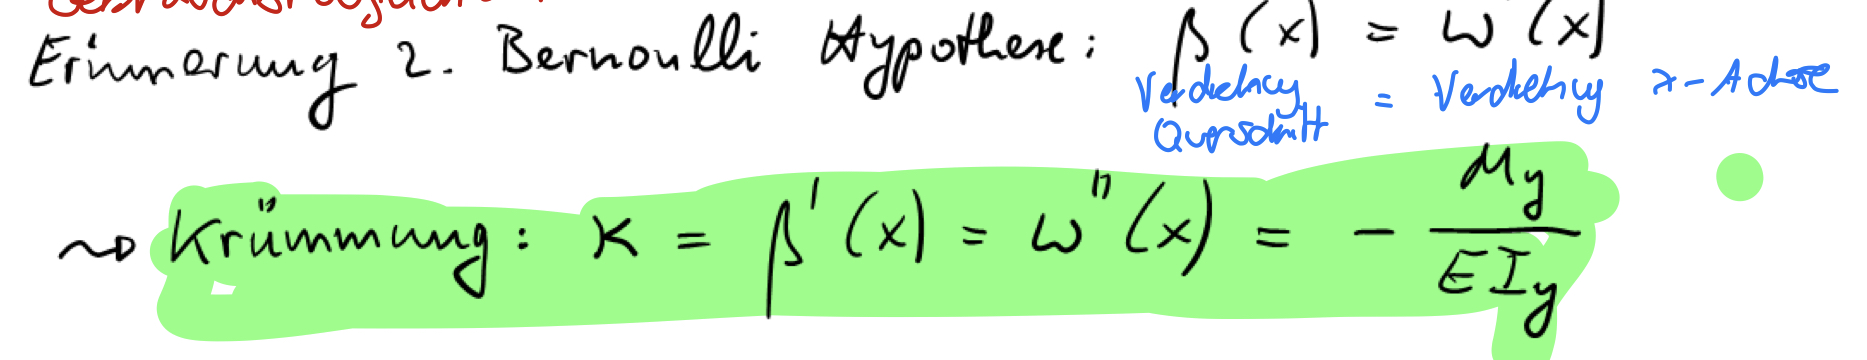 Erinnerung 2. Bernoulli Hypothese: β(x) = ω'(x)
Verdrehung Querschnitt = Verdrehung x-Achse
~> Krümmung: κ = β'(x) = ω''(x) = - My / EIy